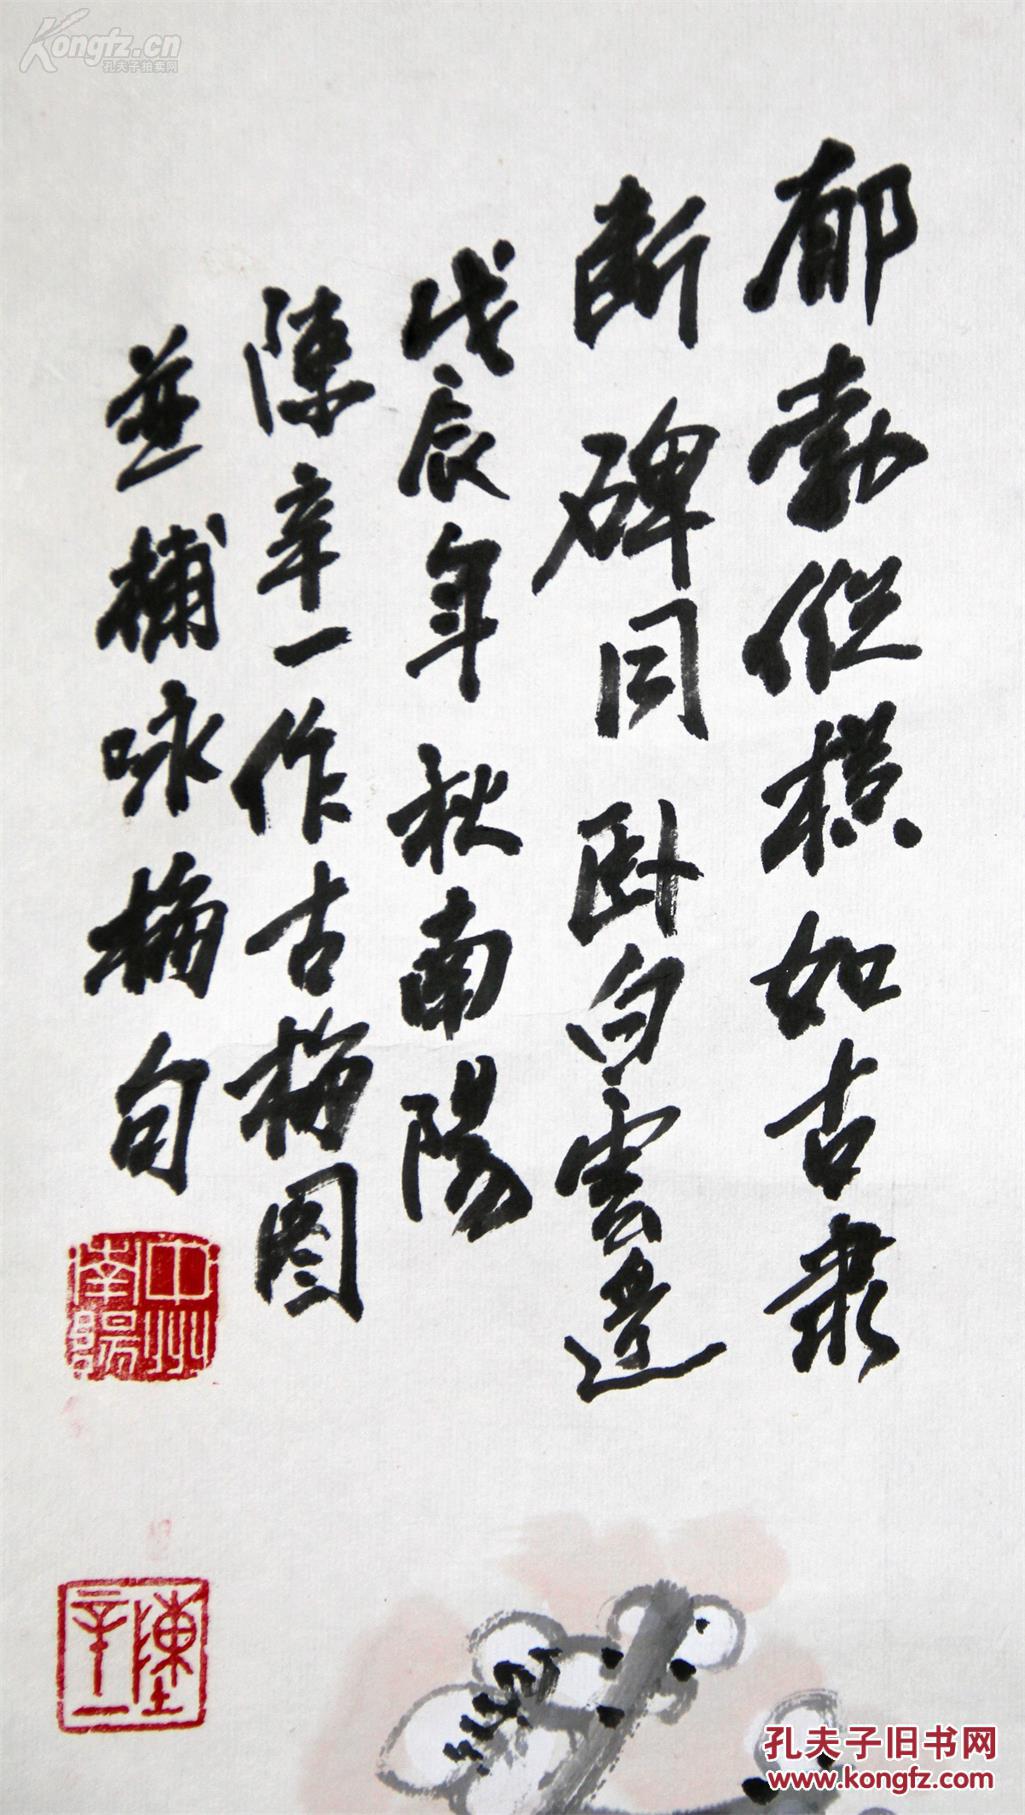 郁勃纵横如古隶
断碑同卧白雲邊
戊辰年秋南陽
陳辛一作古梅图
並補咏梅句
中州南陽
陳辛一
Kongfz.cn
孔夫子拍卖网
孔夫子旧书网
www.kongfz.com